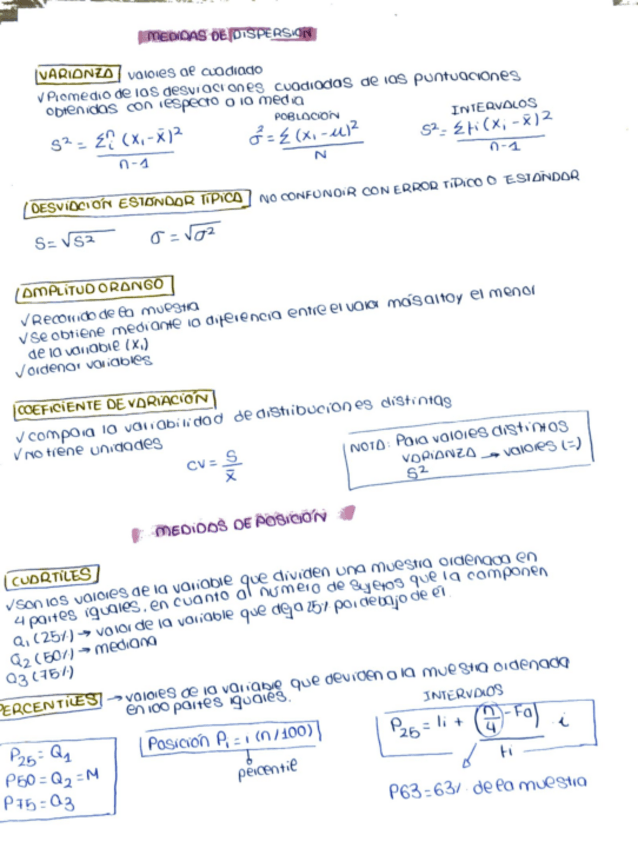 MEDIDAS DE DISPERSION
VARIANZA valores al cuadrado
✓Promedio de las desviaciones cuadradas de las puntuaciones
obtenidas con respecto a la media
POBLACION
INTERVALOS
S² = Σⁿᵢ (xᵢ-x̄)² / n-1
σ² = Σ (xᵢ-μ)² / N
S² = Σfi (xᵢ-x̄)² / n-1
DESVIACION ESTANDAR TIPICA NO CONFUNDIR CON ERROR TIPICO O ESTANDAR
S=√S² σ=√σ²
AMPLITUD O RANGO
✓Recorrido de la muestra
✓Se obtiene mediante la diferencia entre el valor más alto y el menor
de la variable (xᵢ)
✓ordenar variables
COEFICIENTE DE VARIACION
✓compara la variabilidad de distribuciones distintas
✓no tiene unidades
CV = S / x̄
NOTA: Para valores distintos
VARIANZA → valores (=)
S²
MEDIDAS DE POSICIÓN
CUARTILES
✓son los valores de la variable que dividen una muestra ordenada en
4 partes iguales, en cuanto al numero de sujetos que la componen
Q₁ (25%) → valor de la variable que deja 25% por debajo de él.
Q₂ (50%) → mediana
Q₃ (75%)
PERCENTILES → valores de la variable que deviden a la muestra ordenada
en 100 partes iguales.
INTERVALOS
P₂₅ = Q₁
P50 = Q₂ = M
P75 = Q₃
Posición Pᵢ = i (n/100)
percentil
P₂₅ = li + ((n/4) - Fa) / fi · i
P63 = 63% de la muestra